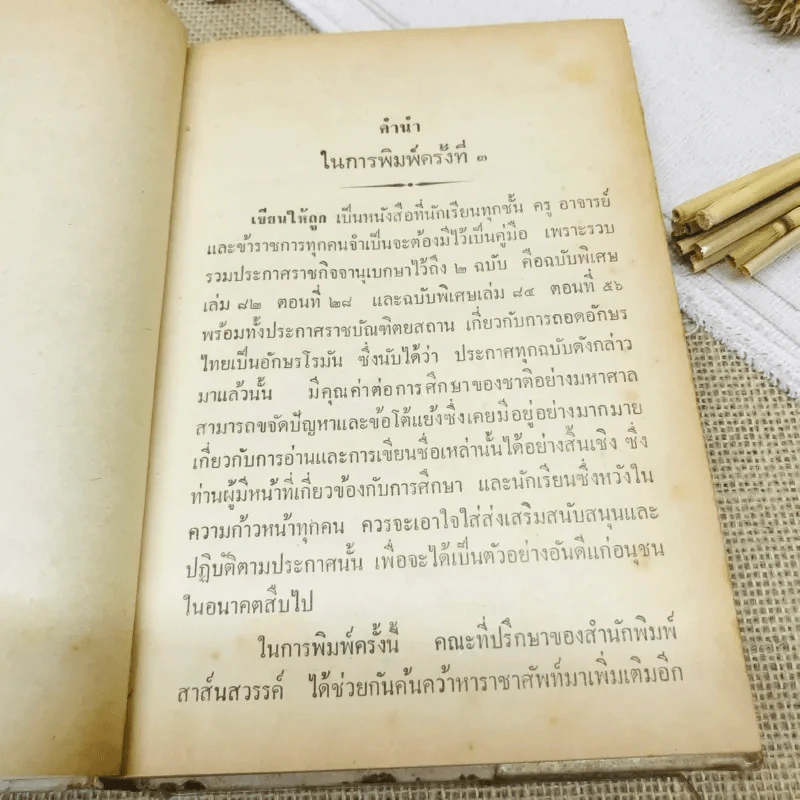 คำนำ
ในการพิมพ์ครั้งที่ ๓
เขียนให้ถูก เป็นหนังสือที่นักเรียนทุกชั้น ครู อาจารย์
และข้าราชการทุกคนจำเป็นจะต้องมีไว้เป็นคู่มือ เพราะรวบ
รวมประกาศราชกิจจานุเบกษาไว้ถึง ๒ ฉบับ คือฉบับพิเศษ
เล่ม ๘๒ ตอนที่ ๒๘ และฉบับพิเศษเล่ม ๘๔ ตอนที่ ๕๖
พร้อมทั้งประกาศราชบัณฑิตยสถาน เกี่ยวกับการถอดอักษร
ไทยเป็นอักษรโรมัน ซึ่งนับได้ว่า ประกาศทุกฉบับดังกล่าว
มาแล้วนั้น มีคุณค่าต่อการศึกษาของชาติอย่างมหาศาล
สามารถขจัดปัญหาและข้อโต้แย้งซึ่งเคยมีอยู่อย่างมากมาย
เกี่ยวกับการอ่านและการเขียนชื่อเหล่านั้นได้อย่างสิ้นเชิง ซึ่ง
ท่านผู้มีหน้าที่เกี่ยวข้องกับการศึกษา และนักเรียนซึ่งหวังใน
ความก้าวหน้าทุกคน ควรจะเอาใจใส่ส่งเสริมสนับสนุนและ
ปฏิบัติตามประกาศนั้น เพื่อจะได้เป็นตัวอย่างอันดีแก่อนุชน
ในอนาคตสืบไป
ในการพิมพ์ครั้งนี้ คณะที่ปรึกษาของสำนักพิมพ์
สาส์นสวรรค์ ได้ช่วยกันค้นคว้าหาราชาศัพท์มาเพิ่มเติมอีก